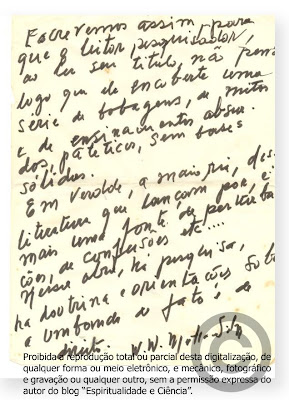 Escrevemos assim para
que o leitor pesquisador,
ao ler seu título, não pense
logo que ele encoberte uma
série de bobagens, de mitos
e de ensinamentos absur-
dos, patéticos, sem bases
sólidas.
Em verdade, a maioria, des
literatura que lançam por, é
mais uma fonte de perturba
ções, de confusões etc....
Nessa obra, há pesquisa,
há doutrina e orientações sob
a umbanda de fato e de
direito. W. W. da Matta e Silva
C
Proibida a reprodução total ou parcial desta digitalização, de
qualquer forma ou meio eletrônico, e mecânico, fotográfico
e gravação ou qualquer outro, sem a permissão expressa do
autor do blog "Espiritualidade e Ciência".